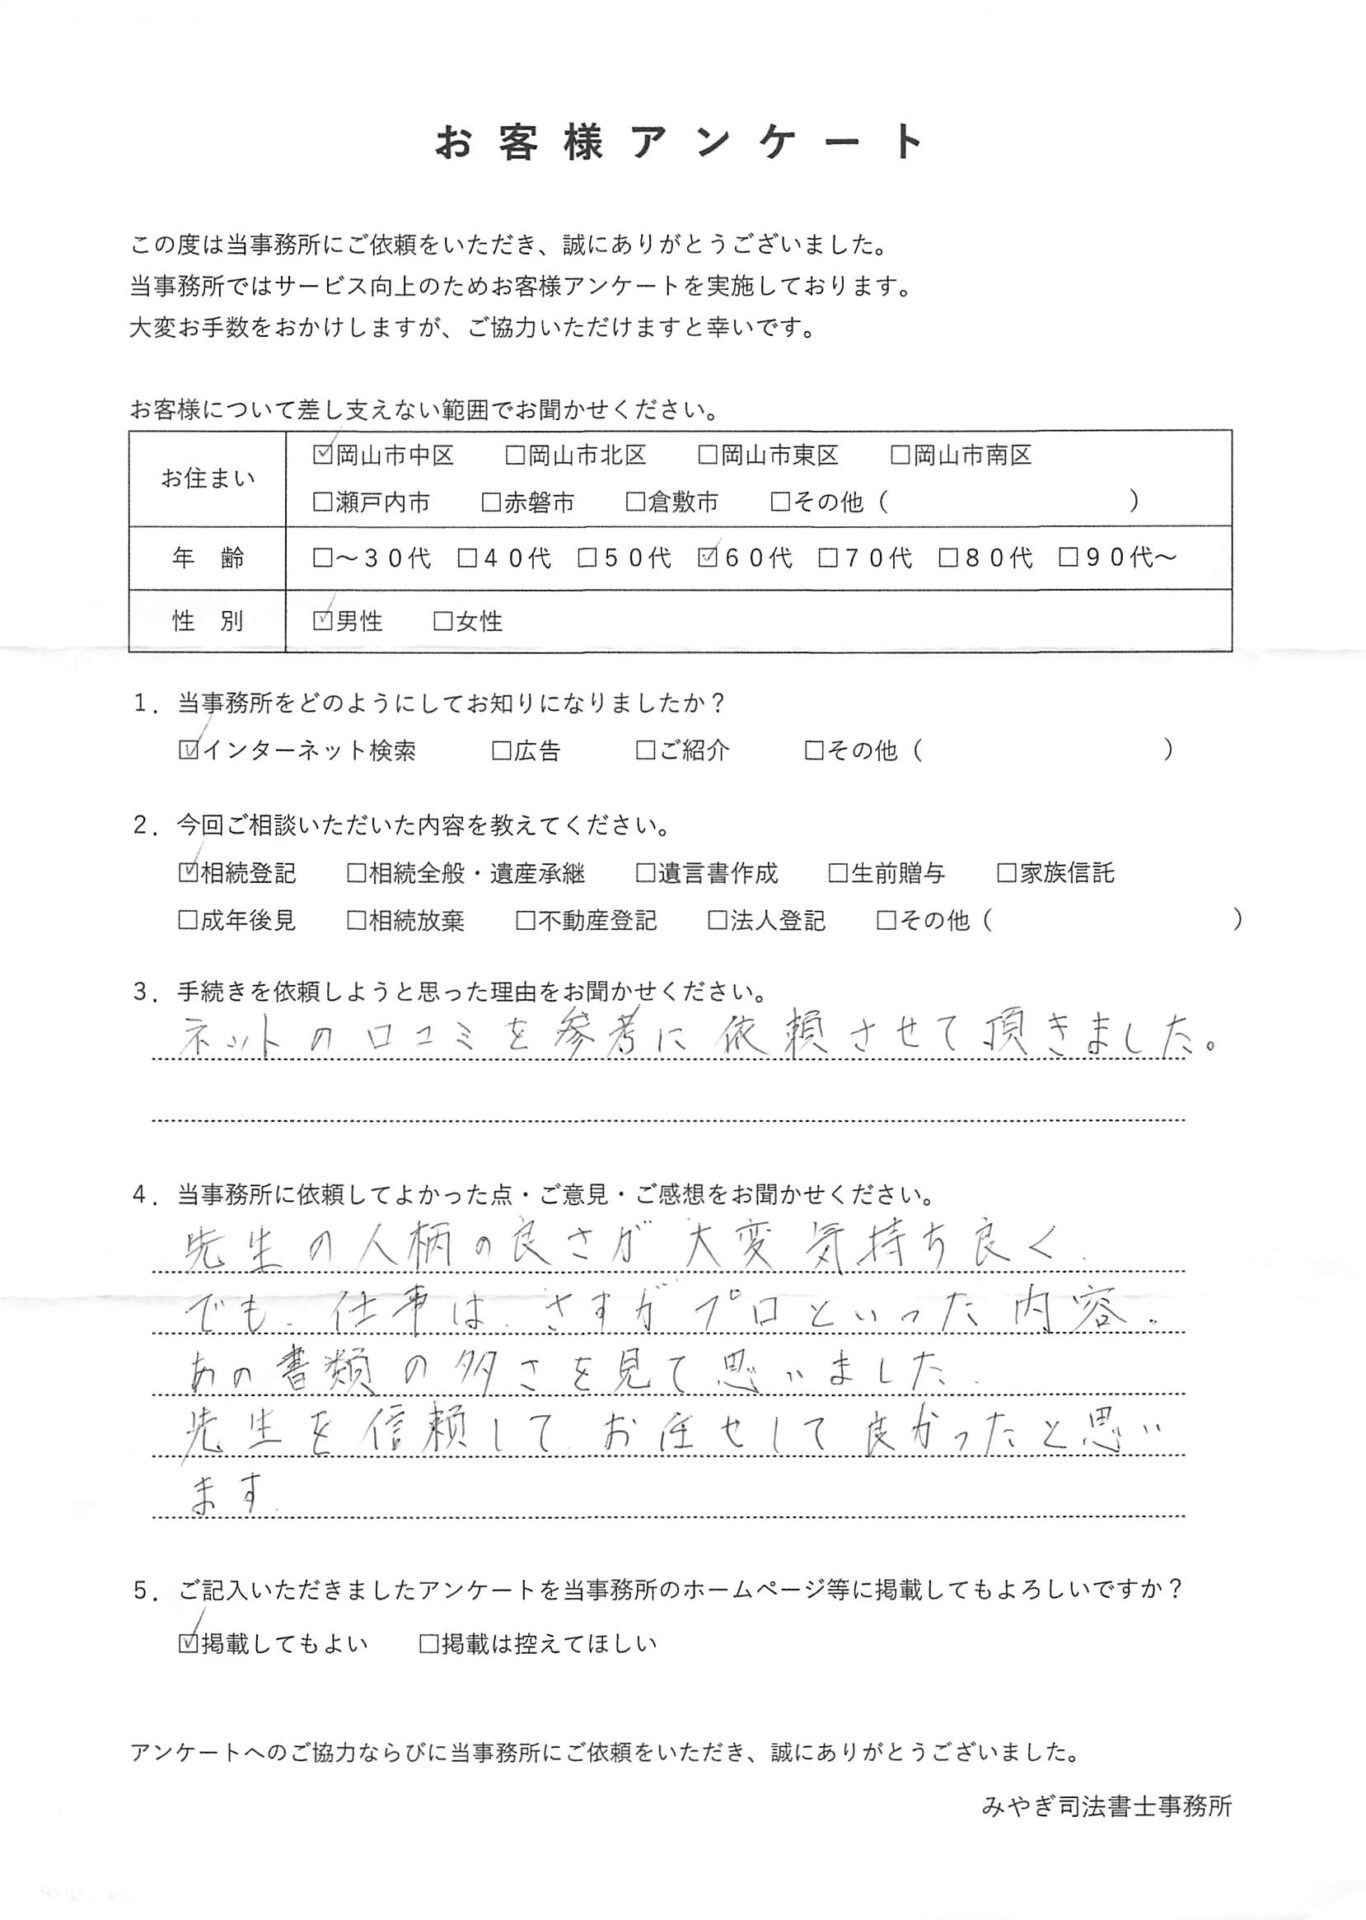 お客様アンケート
この度は当事務所にご依頼をいただき、誠にありがとうございました。
当事務所ではサービス向上のためお客様アンケートを実施しております。
大変お手数をおかけしますが、ご協力いただけますと幸いです。
お客様について差し支えない範囲でお聞かせください。
お住まい ☑岡山市中区 □岡山市北区 □岡山市東区 □岡山市南区
□瀬戸内市 □赤磐市 □倉敷市 □その他（ ）
年 齢 □～３０代 □４０代 □５０代 ☑６０代 □７０代 □８０代 □９０代～
性 別 ☑男性 □女性
１．当事務所をどのようにしてお知りになりましたか？
☑インターネット検索 □広告 □ご紹介 □その他（ ）
２．今回ご相談いただいた内容を教えてください。
☑相続登記 □相続全般・遺産承継 □遺言書作成 □生前贈与 □家族信託
□成年後見 □相続放棄 □不動産登記 □法人登記 □その他（ ）
３．手続きを依頼しようと思った理由をお聞かせください。
ネットの口コミを参考に依頼させて頂きました。
４．当事務所に依頼してよかった点・ご意見・ご感想をお聞かせください。
先生の人柄の良さが大変気持ち良く、
でも、仕事は、さすがプロといった内容。
あの書類の多さを見て思いました。
先生を信頼して、お任せして良かったと思い
ます。
５．ご記入いただきましたアンケートを当事務所のホームページ等に掲載してもよろしいですか？
☑掲載してもよい □掲載は控えてほしい
アンケートへのご協力ならびに当事務所にご依頼をいただき、誠にありがとうございました。
みやぎ司法書士事務所